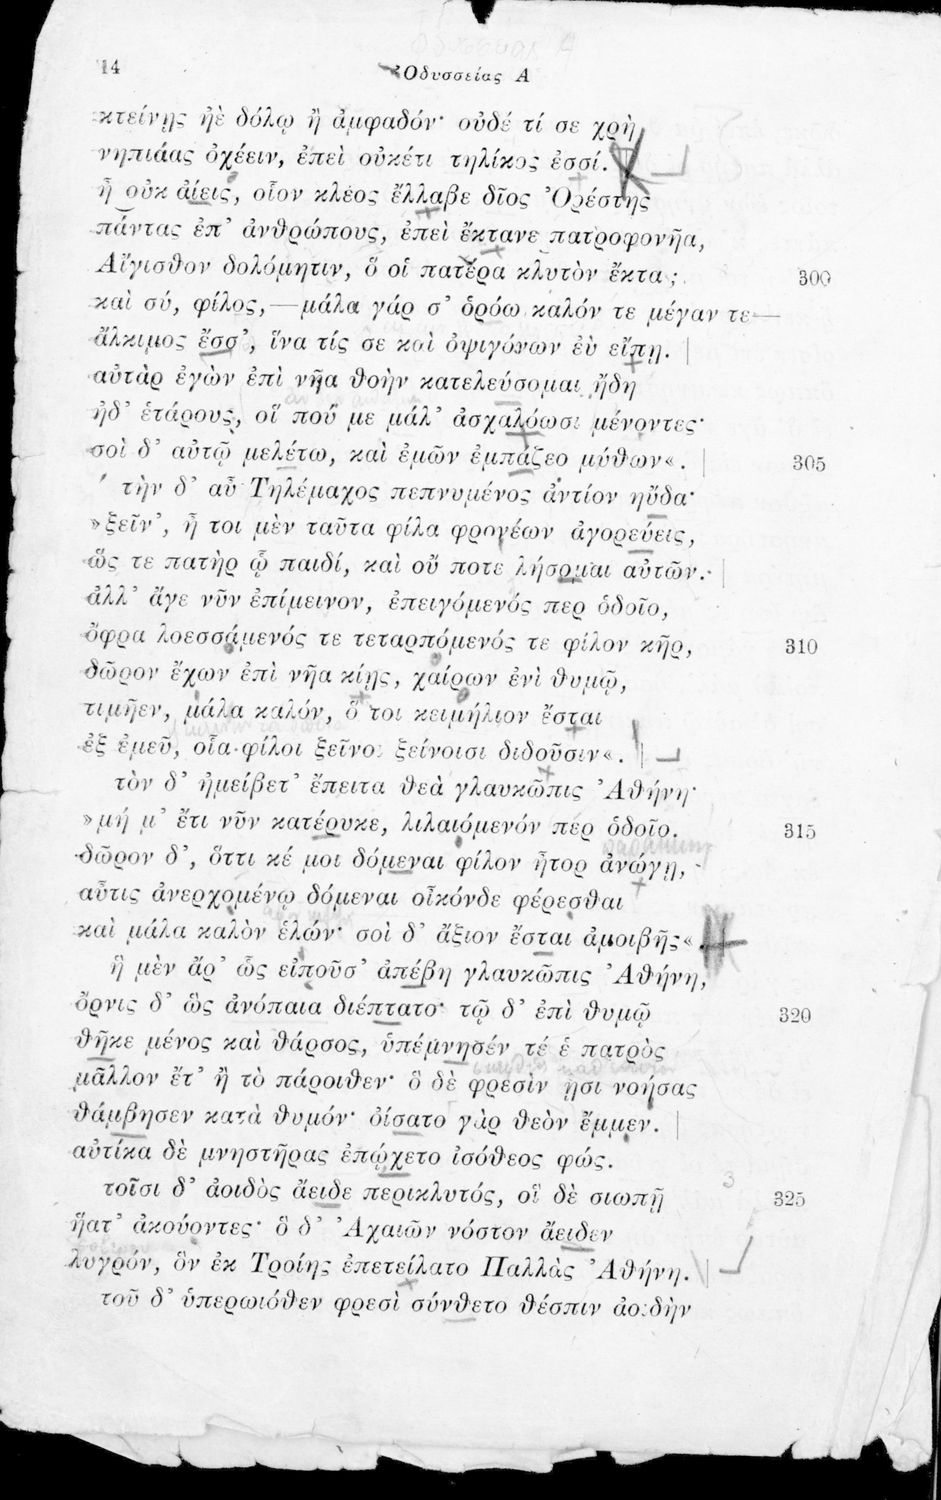 14
Ὀδυσσείας Α
κτείνῃς ἠὲ δόλῳ ἢ ἀμφαδόν· οὐδέ τί σε χρὴ
νηπιάας ὀχέειν, ἐπεὶ οὐκέτι τηλίκος ἐσσί.
ἢ οὐκ ἀίεις, οἷον κλέος ἔλλαβε δῖος Ὀρέστης
πάντας ἐπ' ἀνθρώπους, ἐπεὶ ἔκτανε πατροφονῆα,
Αἴγισθον δολόμητιν, ὅ οἱ πατέρα κλυτὸν ἔκτα;
300
καὶ σύ, φίλος, — μάλα γάρ σ' ὁρόω καλόν τε μέγαν τε —
ἄλκιμος ἔσσ', ἵνα τίς σε καὶ ὀψιγόνων ἐὺ εἴπῃ.
αὐτὰρ ἐγὼν ἐπὶ νῆα θοὴν κατελεύσομαι ἤδη
ἠδ' ἑτάρους, οἵ πού με μάλ' ἀσχαλόωσι μένοντες·
σοὶ δ' αὐτῷ μελέτω, καὶ ἐμῶν ἐμπάζεο μύθων«.
305
τὴν δ' αὖ Τηλέμαχος πεπνυμένος ἀντίον ηὔδα·
»ξεῖν', ἦ τοι μὲν ταῦτα φίλα φρονέων ἀγορεύεις,
ὥς τε πατὴρ ᾧ παιδί, καὶ οὔ ποτε λήσομαι αὐτῶν.
ἀλλ' ἄγε νῦν ἐπίμεινον, ἐπειγόμενός περ ὁδοῖο,
ὄφρα λοεσσάμενός τε τεταρπόμενός τε φίλον κῆρ,
310
δῶρον ἔχων ἐπὶ νῆα κίῃς, χαίρων ἐνὶ θυμῷ,
τιμῆεν, μάλα καλόν, ὅ τοι κειμήλιον ἔσται
ἐξ ἐμεῦ, οἷα φίλοι ξεῖνοι ξείνοισι διδοῦσιν«.
τὸν δ' ἠμείβετ' ἔπειτα θεὰ γλαυκῶπις Ἀθήνη·
»μή μ' ἔτι νῦν κατέρυκε, λιλαιόμενόν περ ὁδοῖο.
315
δῶρον δ', ὅττι κέ μοι δόμεναι φίλον ἦτορ ἀνώγῃ,
αὖτις ἀνερχομένῳ δόμεναι οἶκόνδε φέρεσθαι
καὶ μάλα καλὸν ἑλών· σοὶ δ' ἄξιον ἔσται ἀμοιβῆς«.
ἡ μὲν ἄρ' ὣς εἰποῦσ' ἀπέβη γλαυκῶπις Ἀθήνη,
ὄρνις δ' ὣς ἀνόπαια διέπτατο· τῷ δ' ἐπὶ θυμῷ
320
θῆκε μένος καὶ θάρσος, ὑπέμνησέν τέ ἑ πατρὸς
μᾶλλον ἔτ' ἢ τὸ πάροιθεν· ὃ δὲ φρεσὶν ᾗσι νοήσας
θάμβησεν κατὰ θυμόν· ὀίσατο γὰρ θεὸν ἔμμεν.
αὐτίκα δὲ μνηστῆρας ἐπῴχετο ἰσόθεος φώς.
τοῖσι δ' ἀοιδὸς ἄειδε περικλυτός, οἳ δὲ σιωπῇ
325
ἥατ' ἀκούοντες· ὃ δ' Ἀχαιῶν νόστον ἄειδεν
λυγρόν, ὃν ἐκ Τροίης ἐπετείλατο Παλλὰς Ἀθήνη.
τοῦ δ' ὑπερωιόθεν φρεσὶ σύνθετο θέσπιν ἀοιδὴν